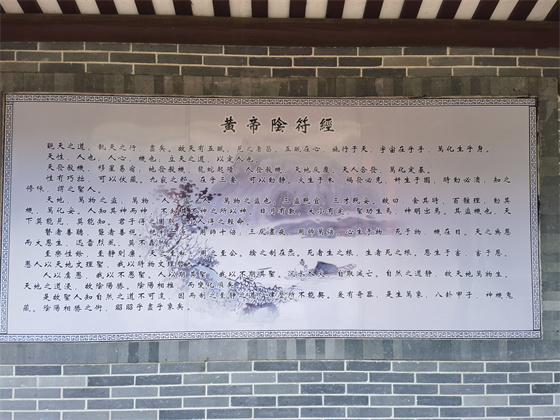 黃帝陰符經
觀天之道，執天之行，盡矣。故天有五賊，見之者昌。五賊在心，施行于天，宇宙在乎手，萬化生乎身。
天性，人也，人心，機也，立天之道，以定人也。
天發殺機，移星易宿，地發殺機，龍蛇起陸，人發殺機，天地反覆，天人合發，萬化定基。
性有巧拙，可以伏藏。九竅之邪，在乎三要，可以動靜。火生于木，禍發必克，奸生于國，時動必潰，知之
修煉，謂之聖人。
天地，萬物之盜，萬物，人之盜，人，萬物之盜也。三盜既宜，三才既安。故曰：食其時，百骸理，動其
機，萬化安。人知其神而神，不知不神之所以神。日月有數，大小有定，聖功生焉，神明出焉。其盜機也，天
下莫能見，莫能知。君子得之固，小人得之輕命。
瞽者善聽，聾者善視。利一源，用師十倍，三反晝夜，用師萬倍。心生于物，死于物，機在目。天之無恩
而大恩生，迅雷烈風，莫不蠢然。
至樂性餘，至靜則廉。天之至私，用之至公。禽之制在炁。死者生之根，生者死之根。恩生于害，害于恩。
愚人以天地文理聖，我以時物文理哲。
人以虞愚，我以不愚聖，人以期其聖，我以不期其聖。沉水入火，自取滅亡。自然之道靜，故天地萬物生，
天地之道浸，故陰陽勝，陰陽相推，而變化順矣。
是故聖人知自然之道不可違，因而制之至靜之道，律曆所不能契。爰有奇器，是生萬象，八卦甲子，神機鬼
藏。陰陽相勝之術，昭昭乎盡乎象矣。